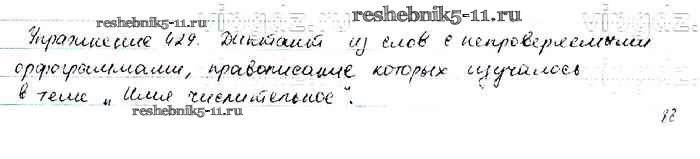 reshebnik5-11.ru
Упражнение 429. Диктант из слов с непроверяемыми
орфограммами, правописание которых изучалось
в теме „Имя числительное".
reshebnik5-11.ru